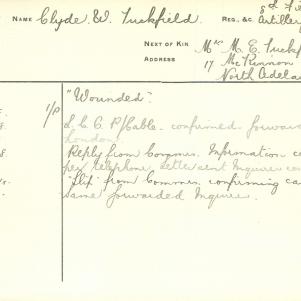 NAME Clyde W. Tuckfield REG., &C. Artillery
NEXT OF KIN Mrs M. E. Tuckf
ADDRESS 17 McKinnon
North Adela
"Wounded".
1/P L & C. P/Cable confirmed forwar
London
Reply from Commns. Information co
per telephone. Letter sent Inquirer con
"Flix" from Commns. confirming ca
same forwarded Inquirer.